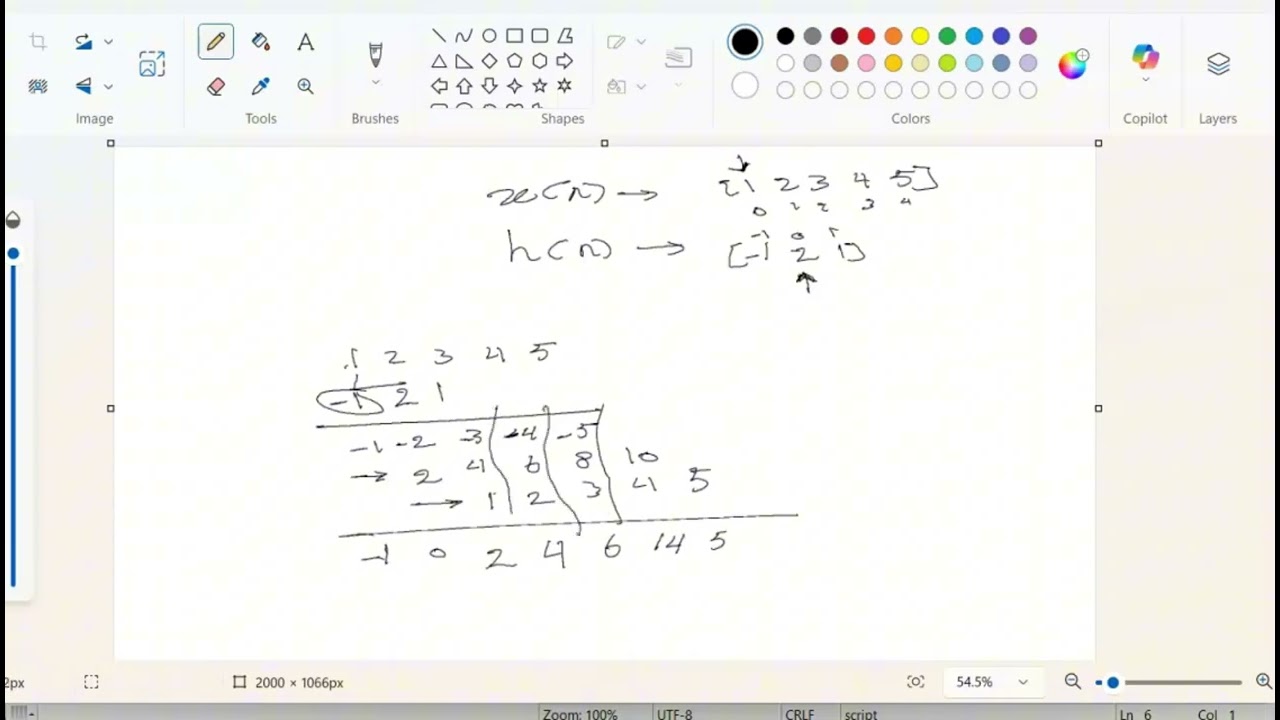 A
Image
Tools
Brushes
Shapes
Colors
Copilot
Layers
x(n) → [1 2 3 4 5]
0 1 2 3 4
-1 0 1
h(n) → [-1 2 1]
1 2 3 4 5
-1 2 1
-1 -2 -3 -4 -5
→ 2 4 6 8 10
→ 1 2 3 4 5
-1 0 2 4 6 14 5
2px
2000 × 1066px
54.5%
Zoom: 100%
UTF-8
CRLF
script
Ln 6
Col 1